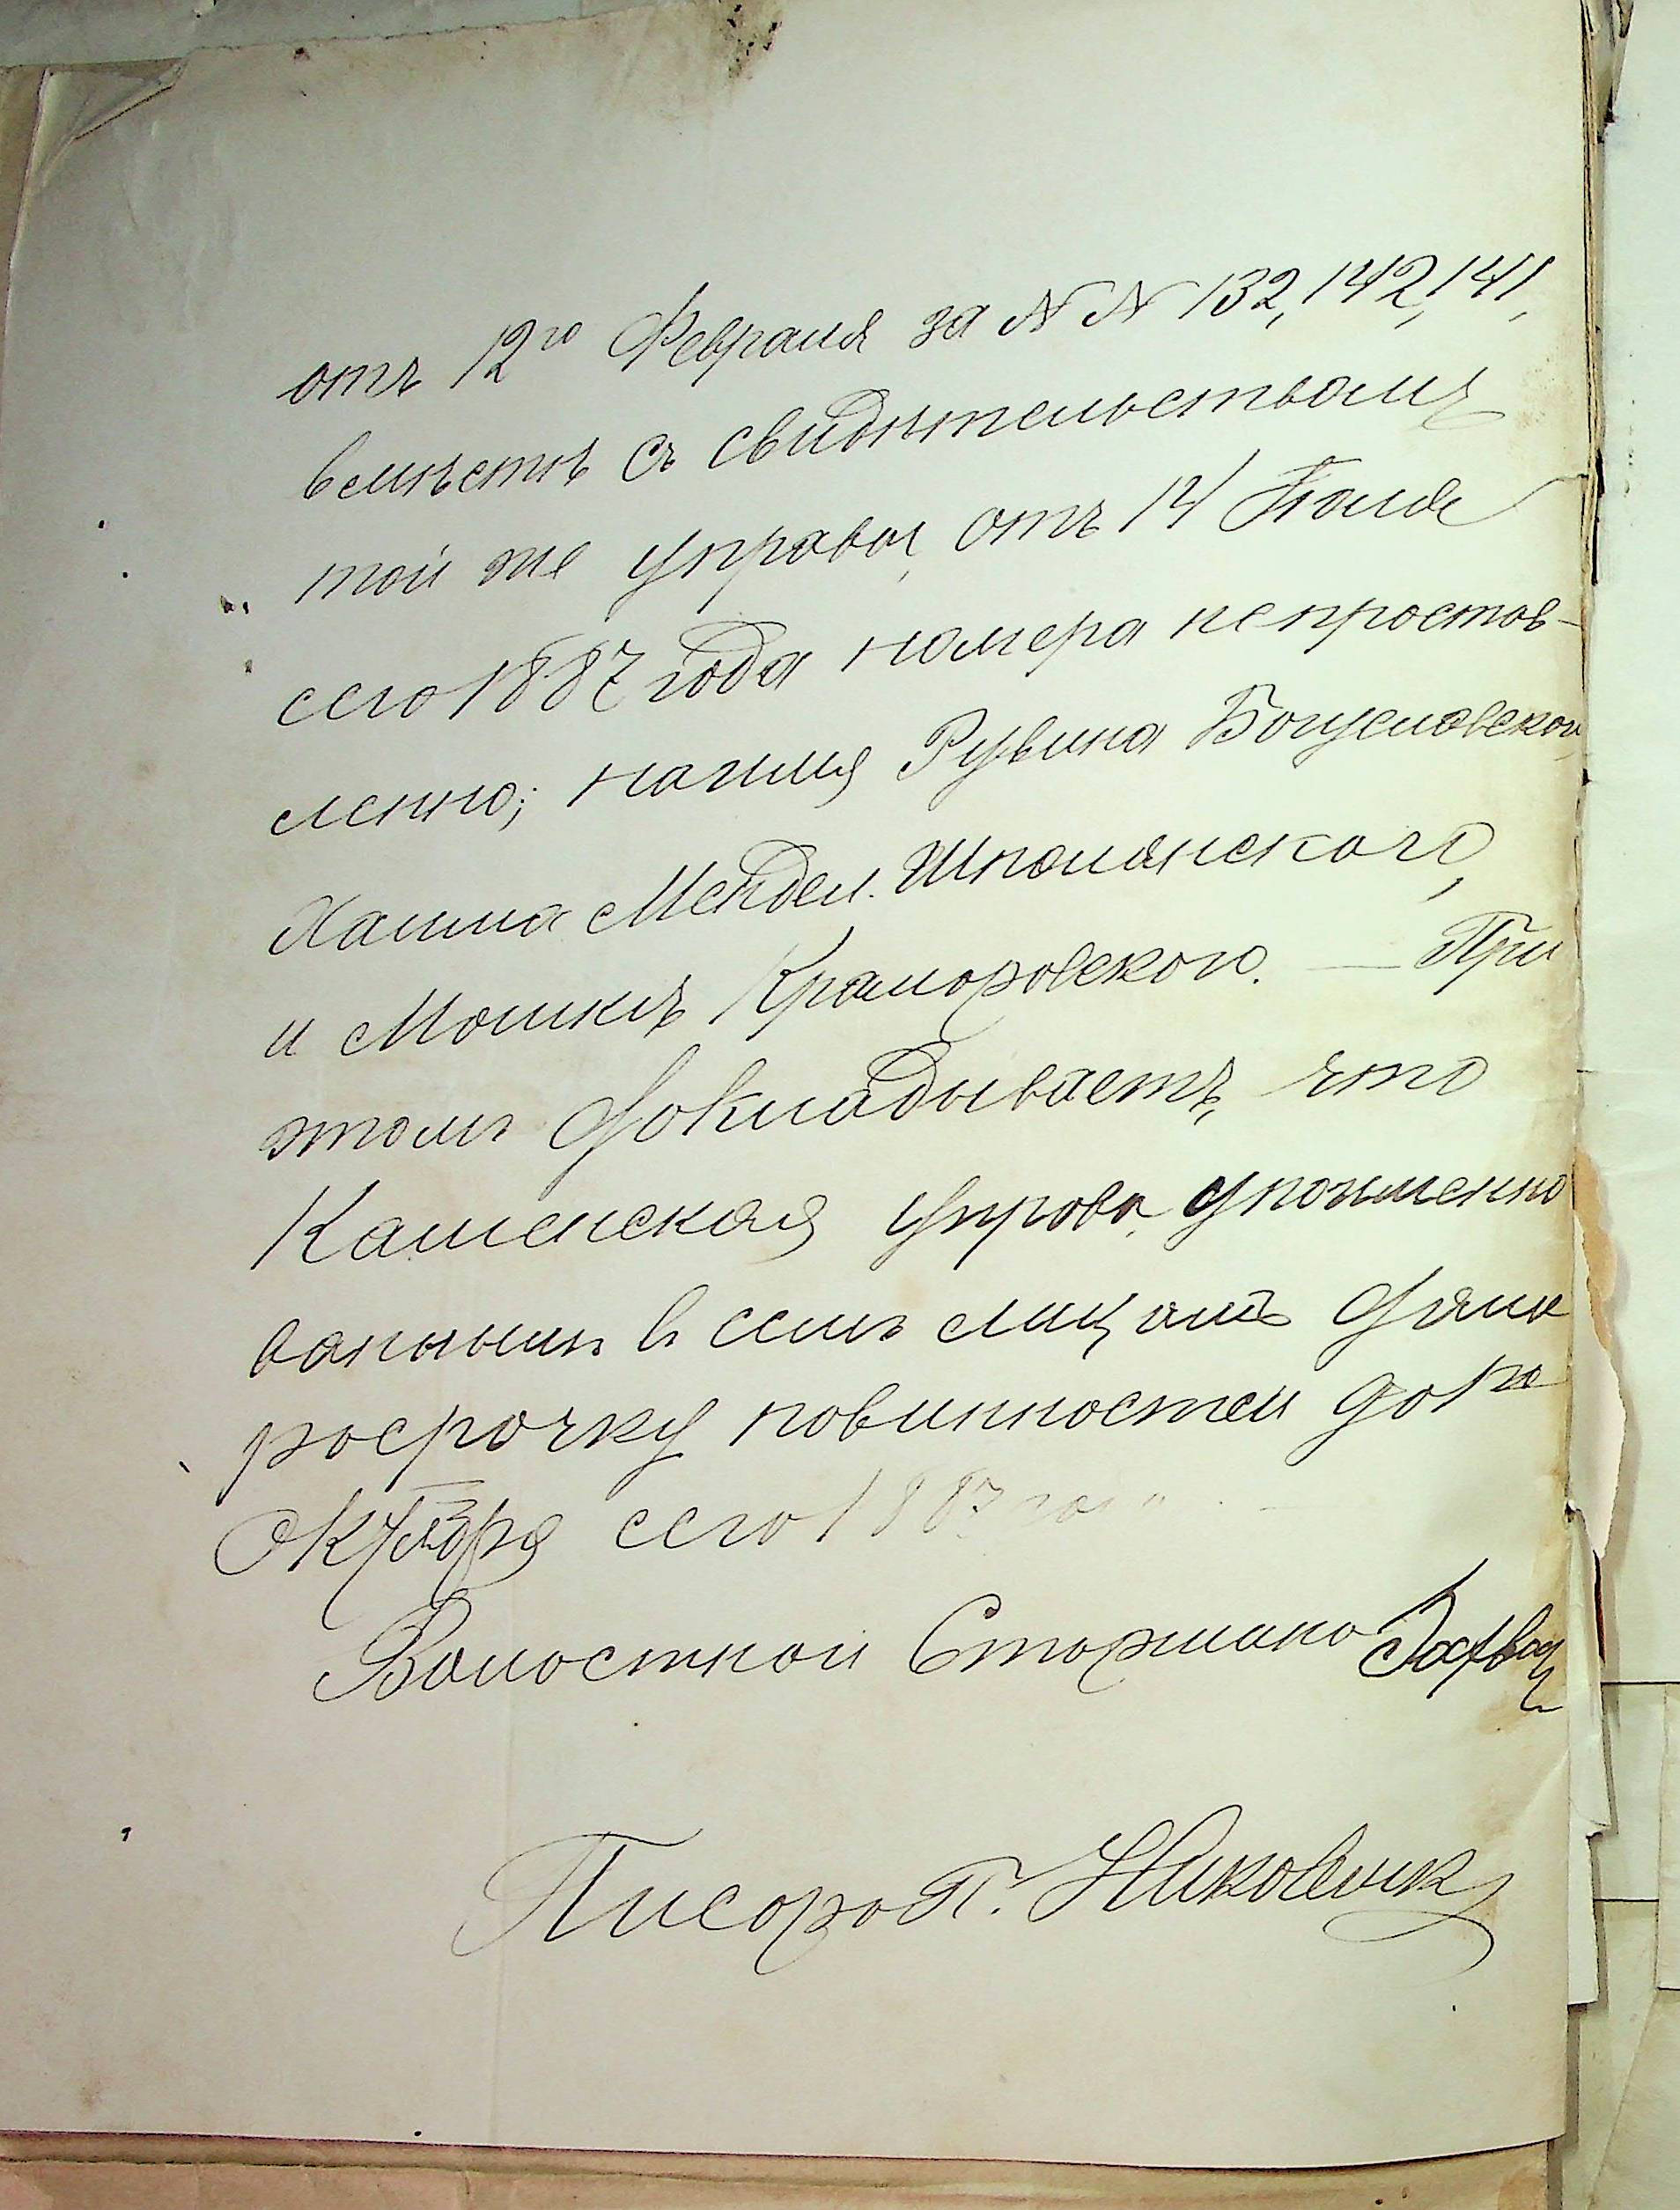 отъ 12го Февраля за NN 132, 142, 141,
вмѣстѣ съ свидѣтельствомъ
той же управы, отъ 14 Iюля
сего 1887 года номера непростав-
лено; на имя Рувина Богуславского,
Хаима Мендел. Шполянского,
и Мошкѣ Краморовского. — При
этомъ докладываетъ, что
Каменская управа, упомяненно
ваннымъ в семъ лицамъ дала
росрочку повинностей до 1го
Октября сего 1887 года
Волостной Старшина
Писарь П. Николюк